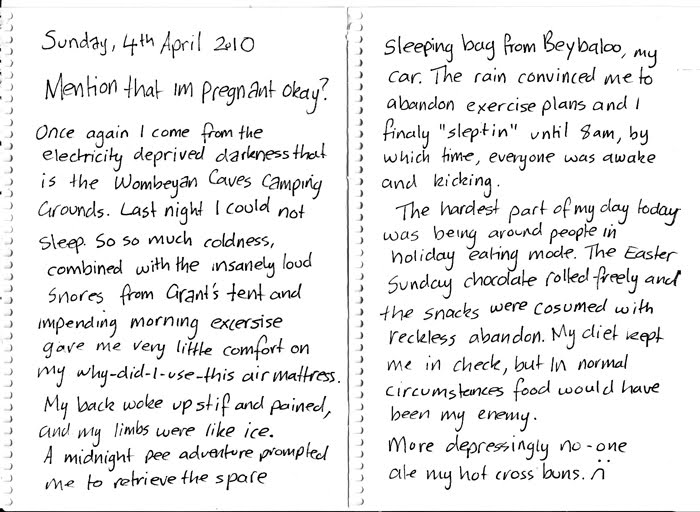 Sunday, 4th April 2010
Mention that im pregnant okay?
Once again I come from the
electricity deprived darkness that
is the Wombeyan Caves Camping
Grounds. Last night I could not
sleep. So so much coldness,
combined with the insanely loud
snores from Grant's tent and
impending morning excersise
gave me very little comfort on
my why-did-I-use-this air mattress.
My back woke up stif and pained,
and my limbs were like ice.
A midnight pee adventure prompted
me to retrieve the spare
sleeping bag from Beybaloo, my
car. The rain convinced me to
abandon exercise plans and I
finaly "slept in" until 8am, by
which time, everyone was awake
and kicking.
The hardest part of my day today
was being around people in
holiday eating mode. The Easter
Sunday chocolate rolled freely and
the snacks were cosumed with
reckless abandon. My diet kept
me in check, but in normal
circumstances food would have
been my enemy.
More depressingly no-one
ate my hot cross buns.